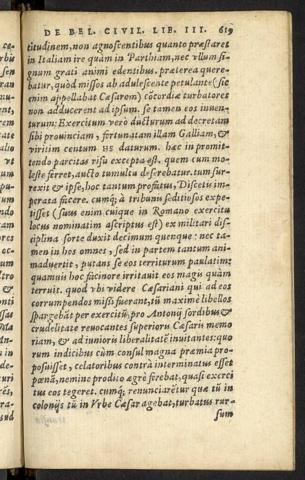 DE BEL. CIVIL. LIB. III. 619
titudinem, non agnoscentibus quanto præstaret
in Italiam ire quàm in Parthiam, nec vllum si-
gnum grati animi edentibus. præterea quere-
batur, quòd missos ab adulescente petulante (sic
enim appellabat Cæsarom) cõcordiæ turbatores
non adducerent ad ipsum. se tamen eos inuen-
turum: Exercitum vero ducturum ad decretam
sibi prouinciam, fortunatam illam Galliam, &
viritim centum HS daturum. hæc in promit-
tendo parcitas risu excepta est, quem cum mo-
leste ferret, aucto tumultu deserebatur. tum sur-
rexit & ipse, hoc tantum profatus, Discetis im-
perata facere. cumq; à tribunis seditiosos expe-
tisset (suus enim cuique in Romano exercitu
locus nominatim ascriptus est) ex militari dis-
ciplina sorte duxit decimum quemque: nec ta-
men in hos omneis, sed in partem tantum ani-
maduertit, putans se eos territurum paulatim:
quamuis hoc facinore irritauit eos magis quàm
terruit. quod vbi videre Cæsariani qui ad eos
corrumpendos missi fuerant, tũ maximè libellos
spargebãt per exercitũ, pro Antonij sordibus &
crudelitate reuocantes superioris Cæsaris memo
riam, & ad iunioris liberalitatẽ inuitantes: quo
rum indicibus cùm consul magna præmia pro-
posuisset, celatoribus contrà interminatus esset
pœnã, nemine prodito ægrè ferebat, quasi exerci
tus eos tegeret. cumq; renunciarẽtur quæ tũ in
colonijs tũ in Vrbe Cæsar agebat, turbatus rur-
sum